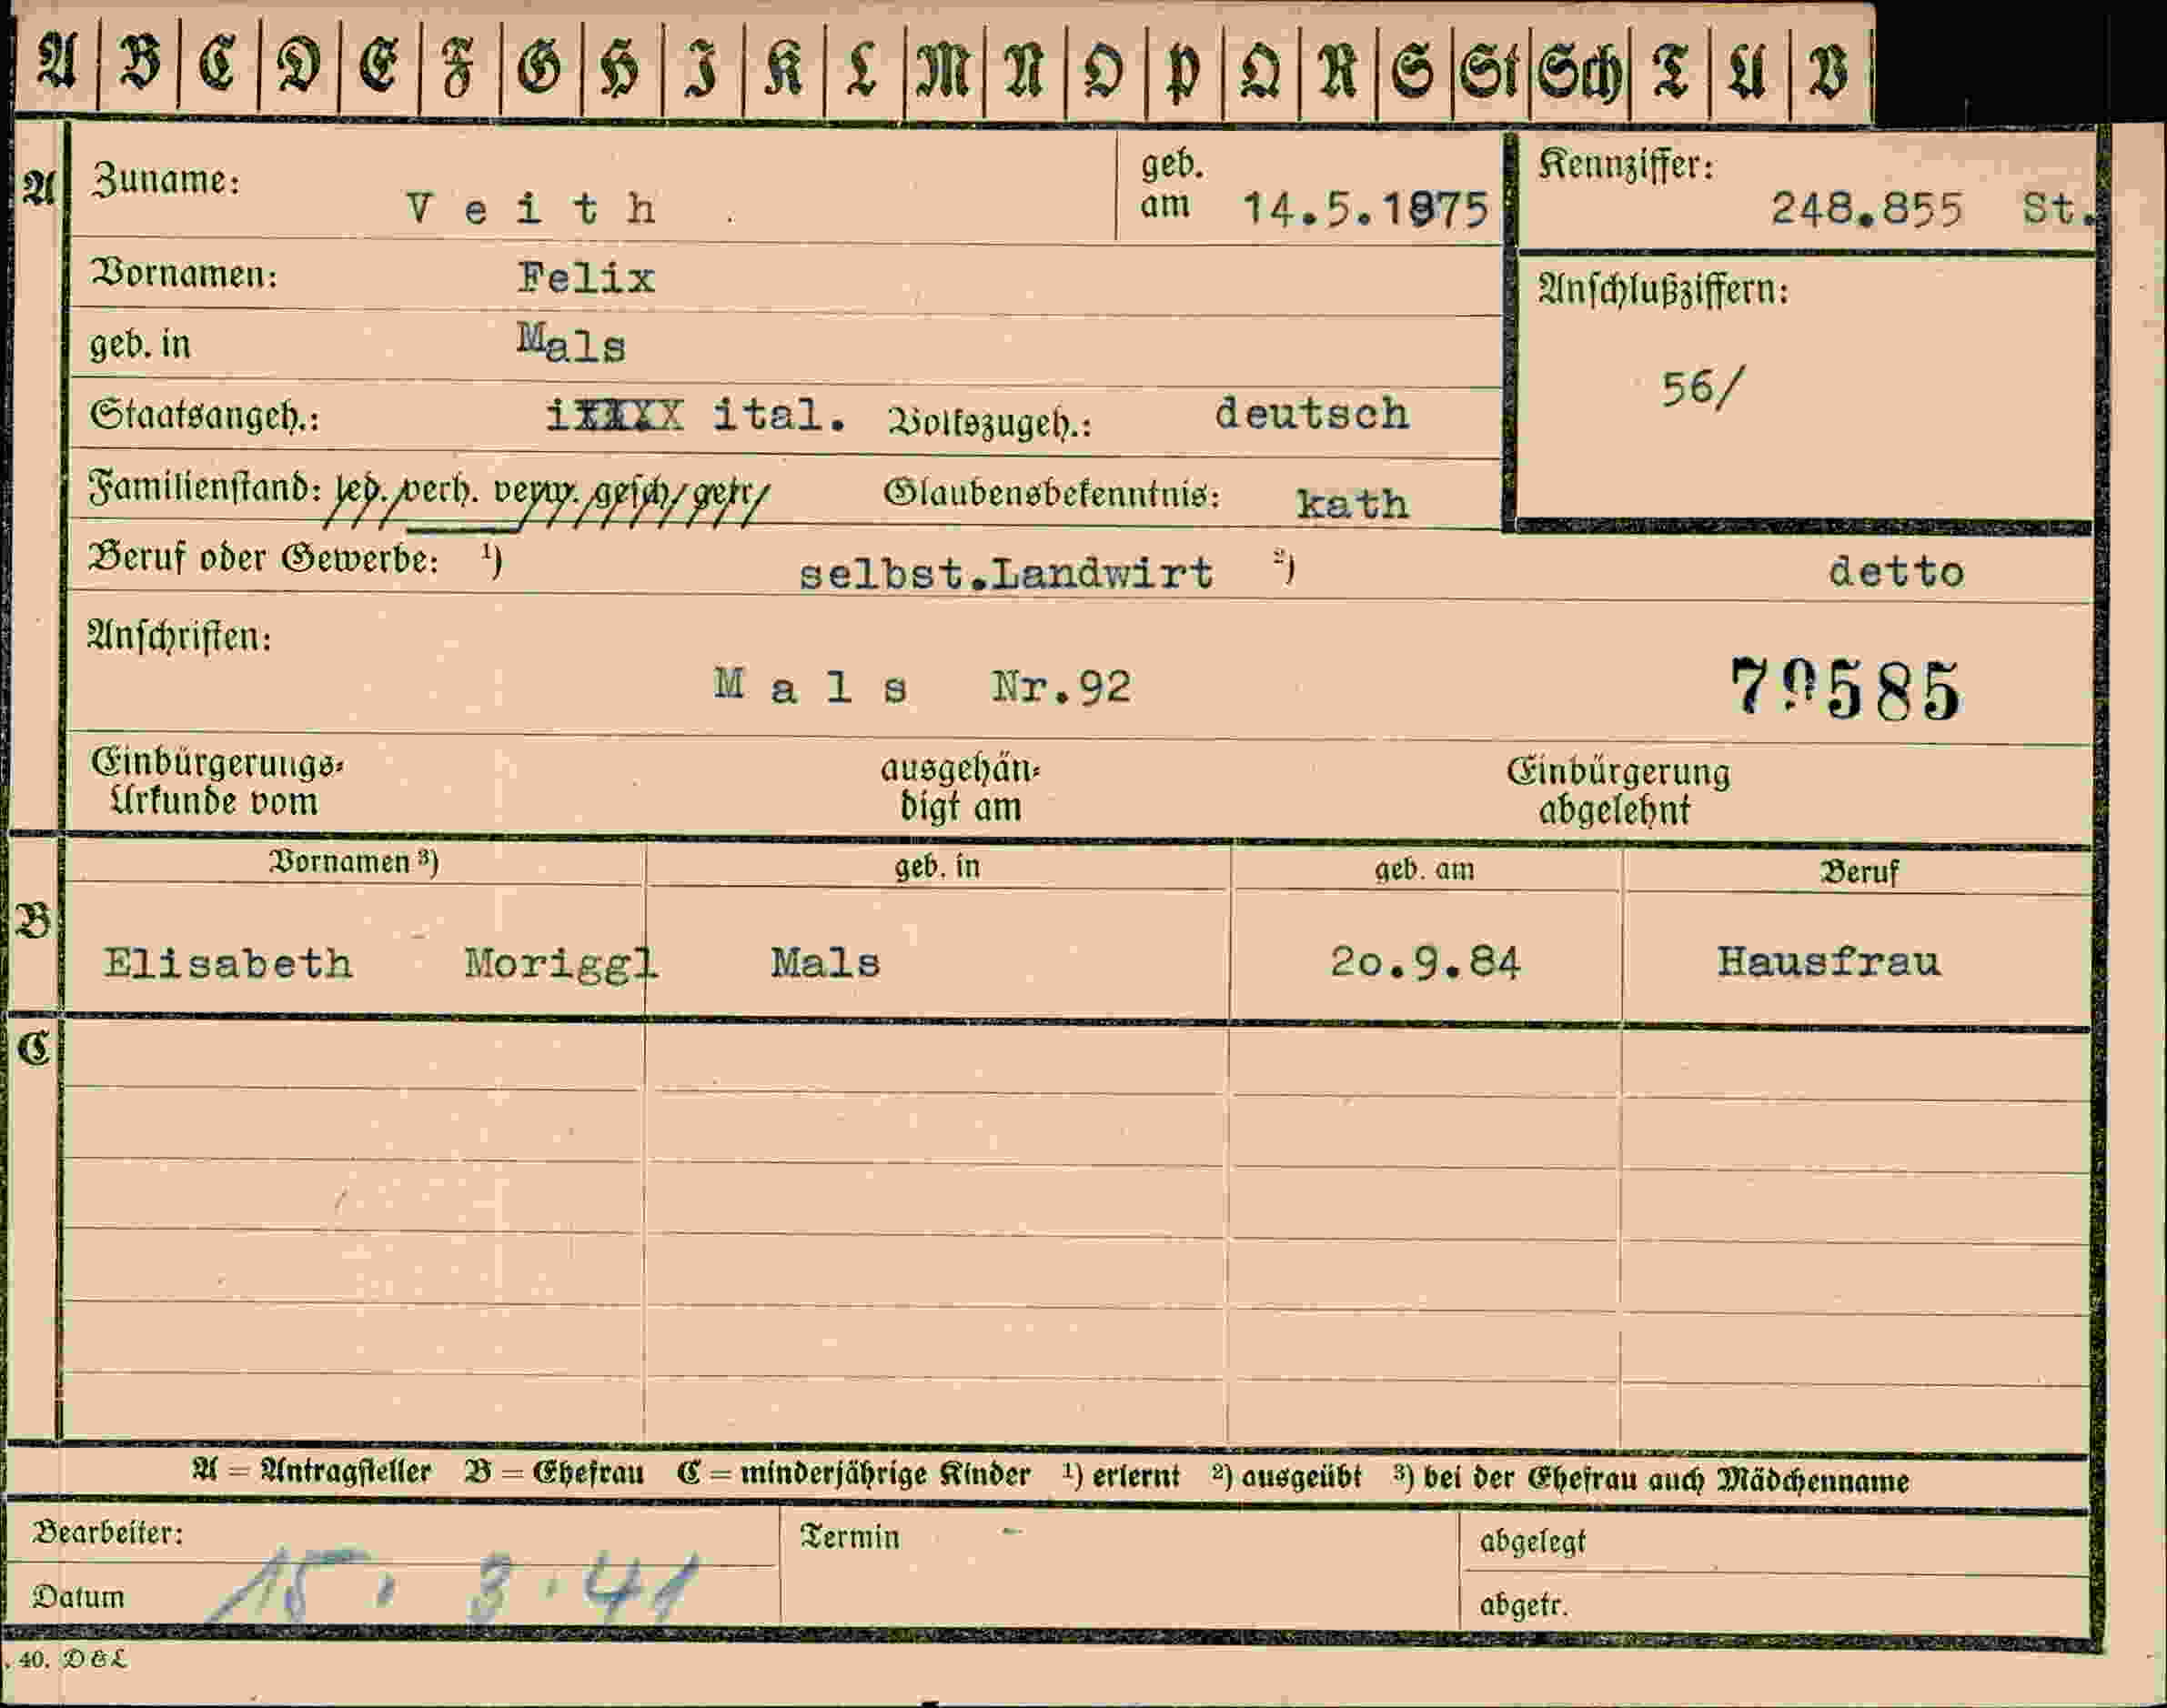 A B C D E F G H I K L M N O P Q R S St Sch T U V
A Zuname: Veith geb. am 14.5.1875 Kennziffer: 248.855 St.
Vornamen: Felix Anschlußziffern:
geb. in Mals 56/
Staatsangeh.: ital. Volkszugeh.: deutsch
Familienstand: led. verh. verw. gesch. getr. Glaubensbekenntnis: kath
Beruf oder Gewerbe: ¹) selbst.Landwirt ²) detto
Anschriften:
Mals Nr.92 79585
Einbürgerungs- ausgehän- Einbürgerung
Urkunde vom digt am abgelehnt
Vornamen ³) geb. in geb. am Beruf
B Elisabeth Moriggl Mals 20.9.84 Hausfrau
C
A = Antragsteller B = Ehefrau C = minderjährige Kinder ¹) erlernt ²) ausgeübt ³) bei der Ehefrau auch Mädchenname
Bearbeiter: Termin - abgelegt
Datum 15. 3. 41 abgetr.
. 40. D & L